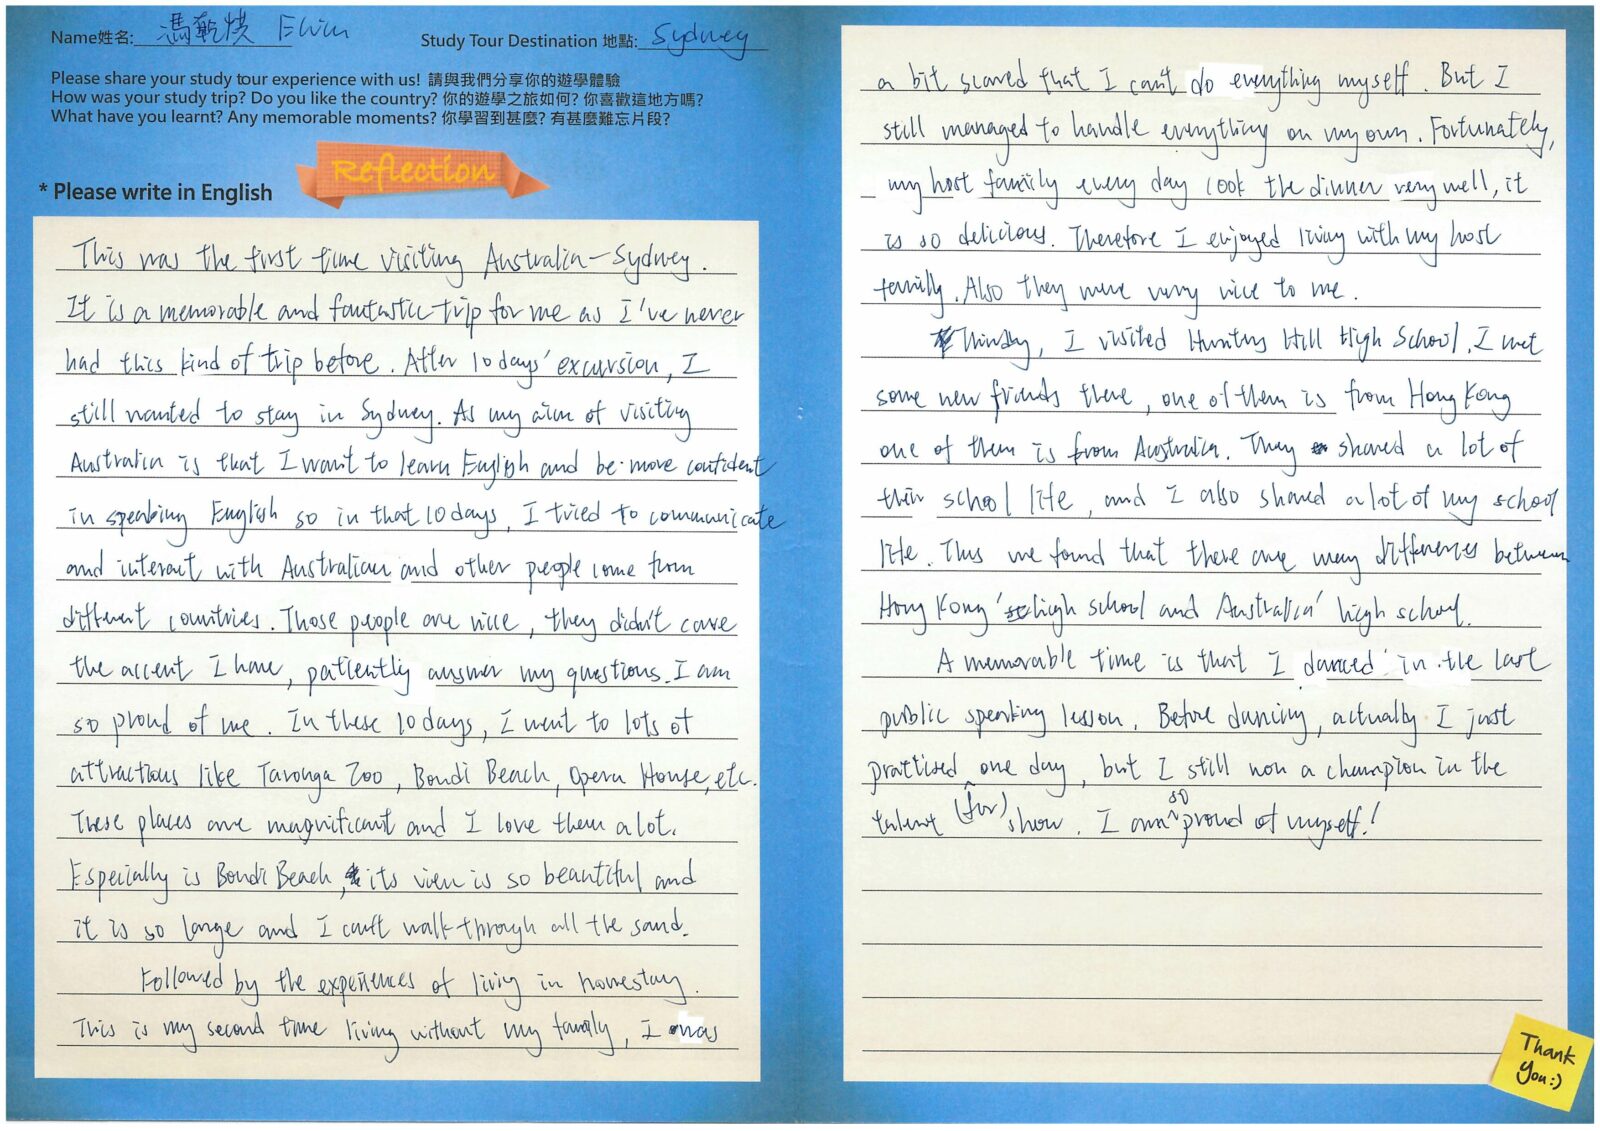 Name姓名: 馮 Elvin
Study Tour Destination 地點: Sydney
Please share your study tour experience with us! 請與我們分享你的遊學體驗
How was your study trip? Do you like the country? 你的遊學之旅如何? 你喜歡這地方嗎?
What have you learnt? Any memorable moments? 你學習到甚麼? 有甚麼難忘片段?
Reflection
* Please write in English
This was the first time visiting Australia-Sydney.
It is a memorable and fantastic trip for me as I've never
had this kind of trip before. After 10 days' excursion, I
still wanted to stay in Sydney. As my aim of visiting
Australia is that I want to learn English and be more confident
in speaking English so in that 10 days, I tried to communicate
and interact with Australian and other people come from
different countries. Those people are nice, they didn't care
the accent I have, patiently answer my questions. I am
so proud of me. In these 10 days, I went to lots of
attractions like Taronga Zoo, Bondi Beach, Opera House, etc.
These places are magnificant and I love them a lot.
Especially is Bondi Beach, its view is so beautiful and
it is so large and I can't walk through all the sand.
Followed by the experiences of living in homestay.
This is my second time living without my family, I was
a bit scared that I can't do everything myself. But I
still managed to handle everything on my own. Fortunately,
my host family every day cook the dinner very well, it
is so delicious. Therefore I enjoyed living with my host
family. Also they were very nice to me.
Thirdly, I visited Hunters Hill High School. I met
some new friends there, one of them is from Hong Kong
one of them is from Australia. They shared a lot of
their school life, and I also shared a lot of my school
life. Thus we found that there are many differences between
Hong Kong' high school and Australia' high school.
A memorable time is that I danced in the last
public speaking lesson. Before dancing, actually I just
practised one day, but I still won a champion in the
talent (for) show. I am so proud of myself!
Thank
You:)